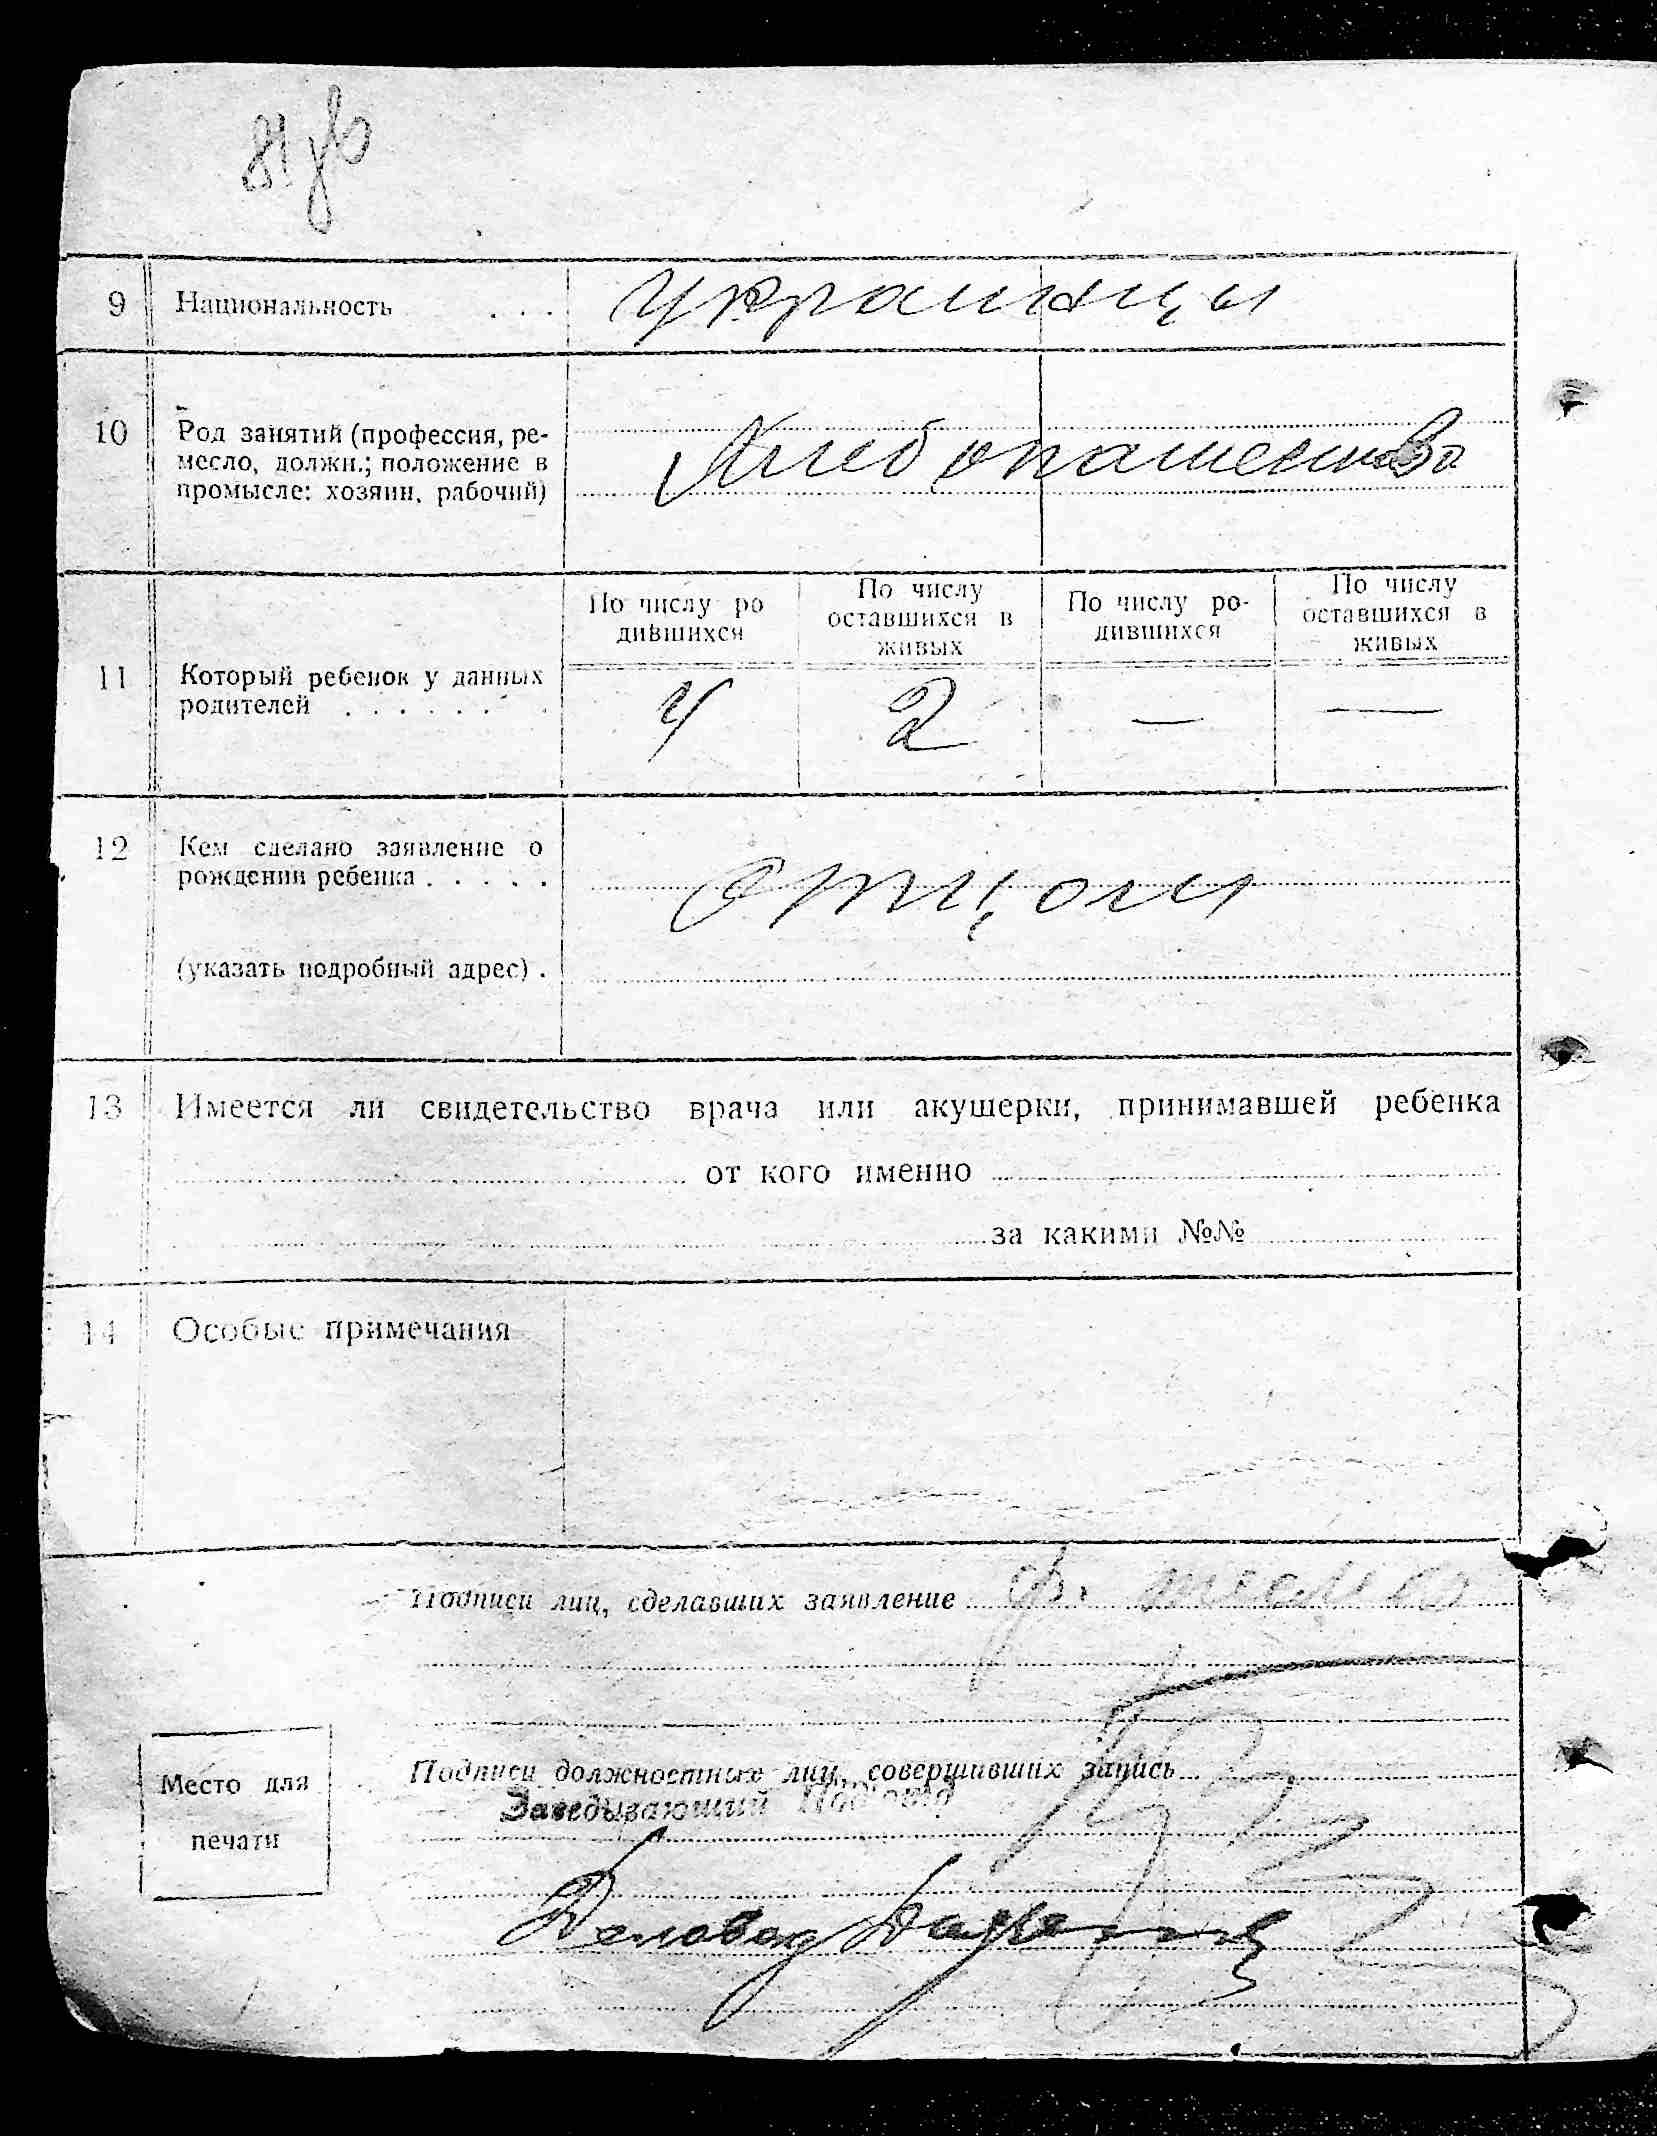 9 Национальность . . . Украинцы
10 Род занятий (профессия, ре-
месло, должн.; положение в
промысле: хозяин, рабочий)
Хлебопашество
По числу ро
дившихся
По числу
оставшихся в
живых
По числу ро-
дившихся
По числу
оставшихся в
живых
11 Который ребенок у данных
родителей . . . . . . .
4 2 — —
12 Кем сделано заявление о
рождении ребенка . . . . .
Отцом
(указать подробный адрес) .
13 Имеется ли свидетельство врача или акушерки, принимавшей ребенка
от кого именно
за какими №№
14 Особые примечания
Подписи лиц, сделавших заявление
Подписи должностных лиц, совершивших запись
Заведывающий Под'отд
Место для
печати
Деловод